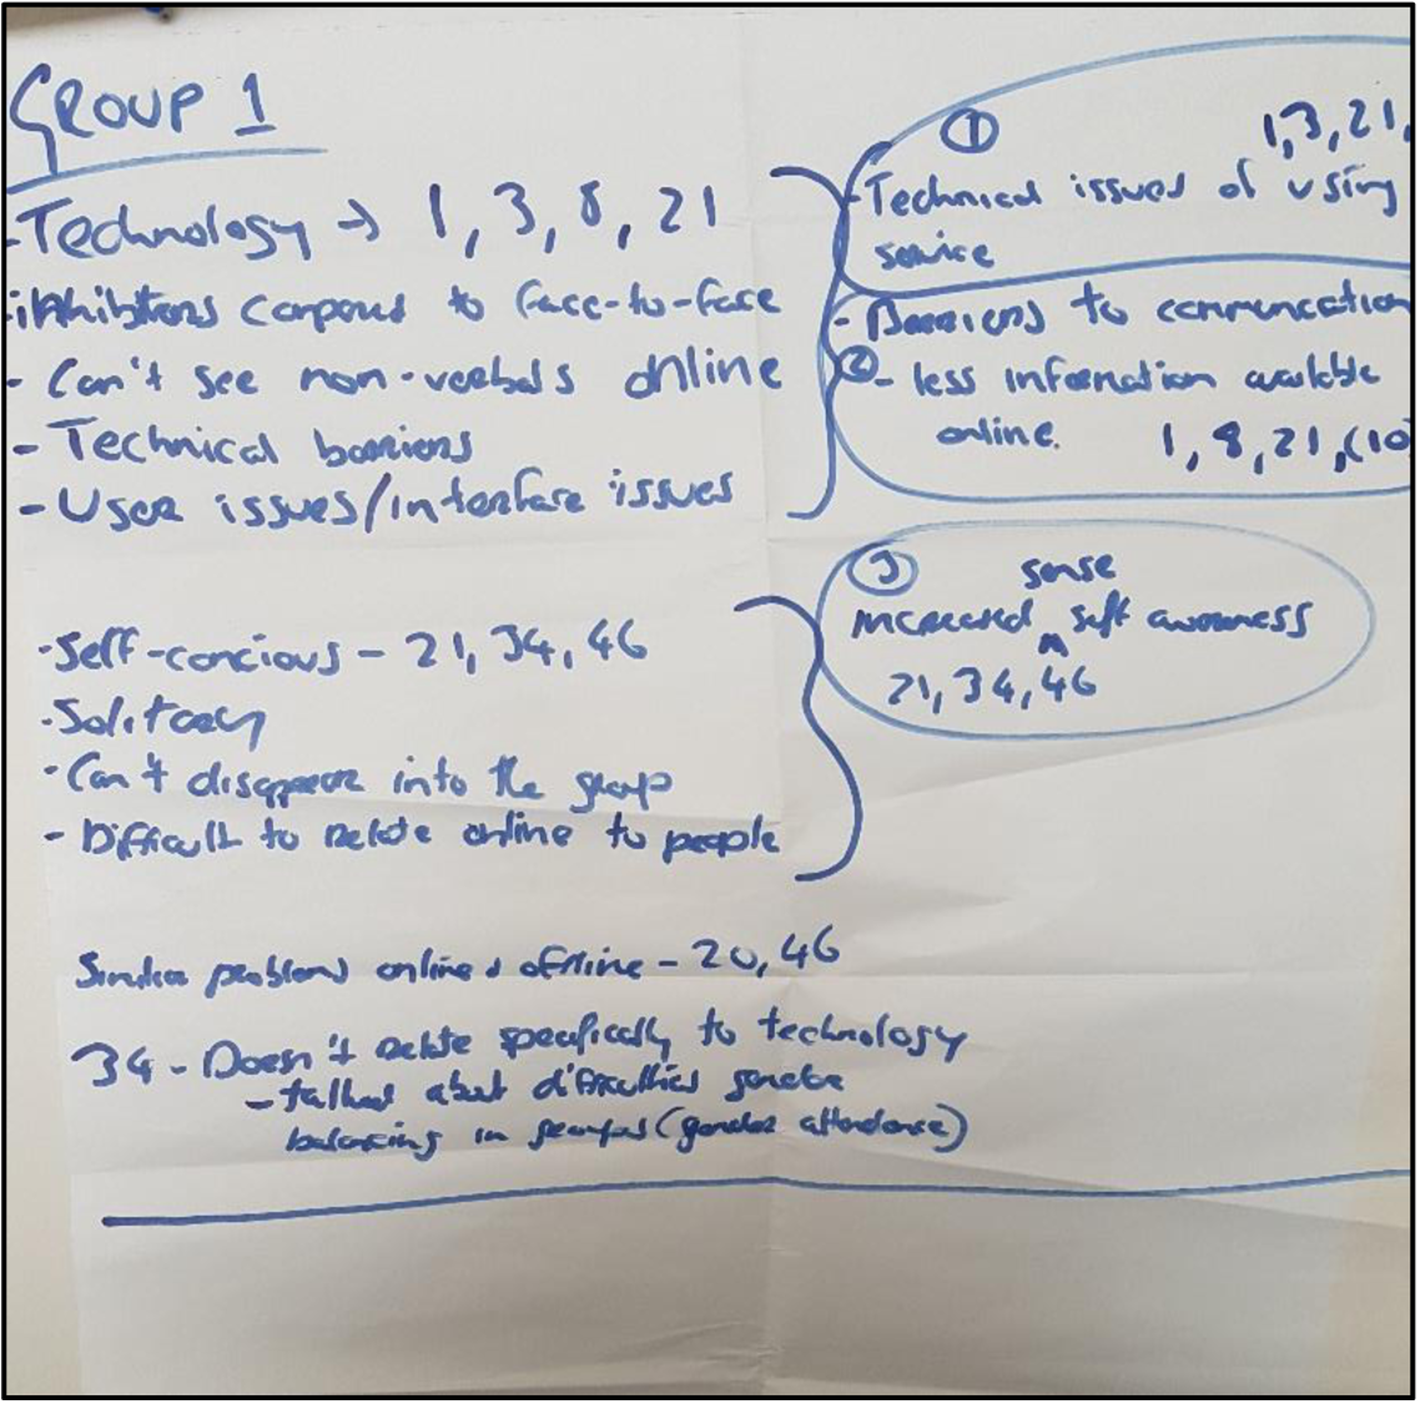 GROUP 1
- Technology → 1, 3, 8, 21
- inhibitions compared to face-to-face
- Can't see non-verbals online
- Technical barriers
- User issues/interface issues
①
1,3,21,
- Technical issues of using
service
- Barriers to communication
② - less information available
online. 1, 8, 21, (10
- Self-concious - 21, 34, 46
- Solitary
- Can't disappear into the group
- Difficult to relate online to people
③ sense
increased ^ self awareness
21, 34, 46
Similar problems online + offline - 20, 46
34 - Doesn't relate specifically to technology
- talked about difficulties gender
balancing in groups (gender attendance)